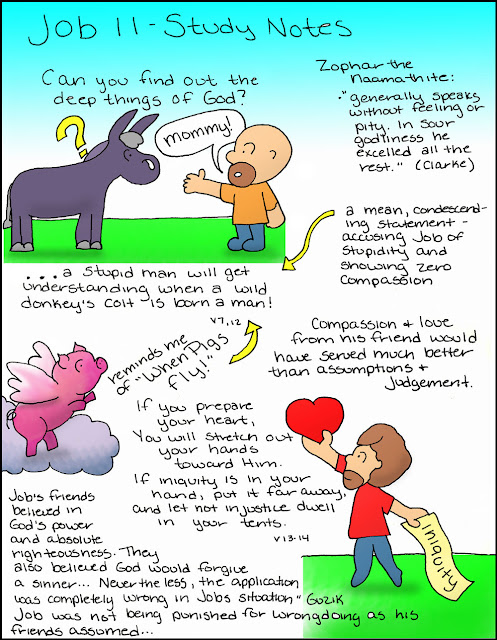 Job 11 - Study Notes
Can you find out the
deep things of God?
?
mommy!
Zophar the
Naamathite:
."generally speaks
without feeling or
pity. In sour
godliness he
excelled all the
rest." (Clarke)
a mean, condescend-
ing statement -
accusing Job of
stupidity and
showing zero
compassion
...a stupid man will get
understanding when a wild
donkey's colt is born a man!
v7,12
reminds me
of "When Pigs
fly!"
Compassion + love
from his friend would
have served much better
than assumptions +
judgement.
If you prepare
your heart,
You will stretch out
your hands
toward Him.
If iniquity is in your
hand, put it far away,
and let not injustice dwell
in your tents.
v13-14
INIQUITY
Job's friends
believed in
God's power
and absolute
righteousness. They
also believed God would forgive
a sinner... Never the less, the application
was completely wrong in Jobs situation" Guzik
Job was not being punished for wrongdoing as his
friends assumed...